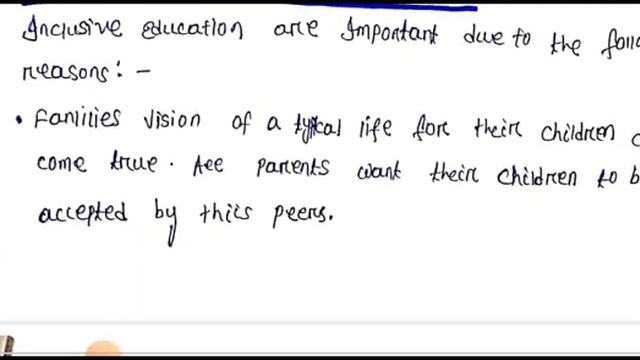 Inclusive education are Important due to the follo
reasons: -
• Families vision of a typical life for their children c
come true. All parents want their children to b
accepted by thiis peers.